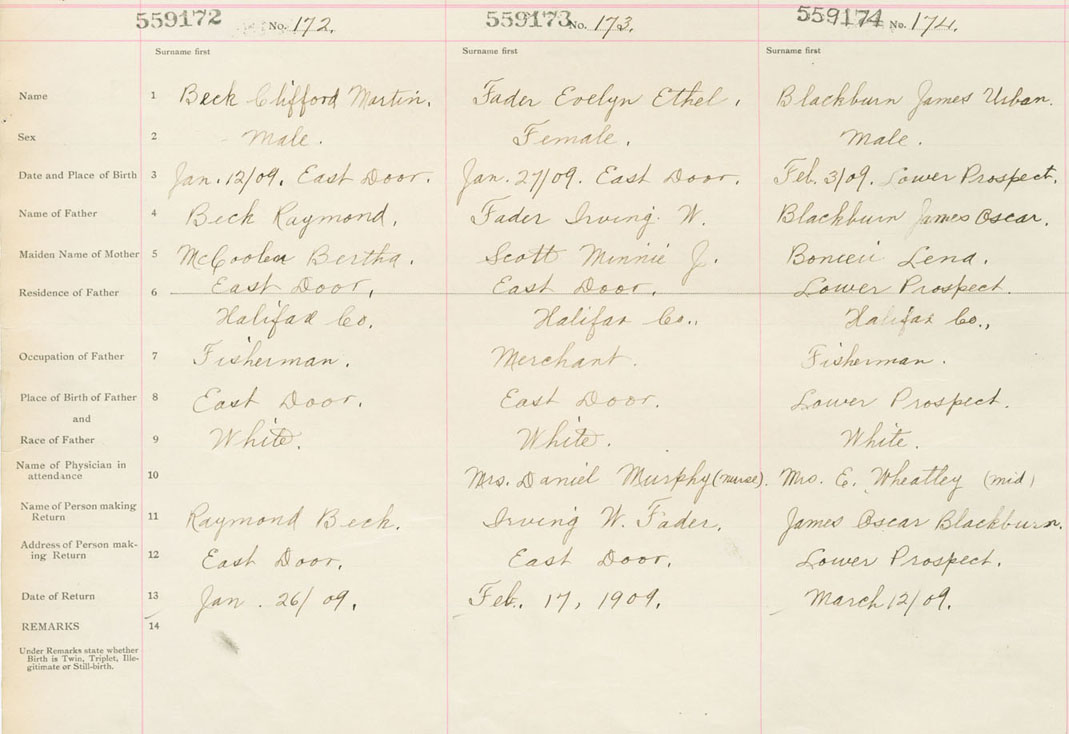 559172 No. 172. 559173 No. 173. 559174 No. 174.
Surname first Surname first Surname first
Name 1 Beck Clifford Martin. Fader Evelyn Ethel. Blackburn James Urban.
Sex 2 Male. Female. Male.
Date and Place of Birth 3 Jan. 12/09. East Door. Jan. 27/09. East Door. Feb. 3/09. Lower Prospect.
Name of Father 4 Beck Raymond. Fader Irving W. Blackburn James Oscar.
Maiden Name of Mother 5 Bertha. Scott Minnie J. Lena.
Residence of Father 6 East Door, East Door, Lower Prospect.
Halifax Co. Halifax Co., Halifax Co.,
Occupation of Father 7 Fisherman. Merchant. Fisherman.
Place of Birth of Father 8 East Door. East Door. Lower Prospect.
and
Race of Father 9 White. White. White.
Name of Physician in
attendance 10 Mrs. Daniel Murphy (nurse). Mrs. E. Wheatley (mid)
Name of Person making
Return 11 Raymond Beck. Irving W. Fader. James Oscar Blackburn.
Address of Person mak-
ing Return 12 East Door. East Door. Lower Prospect.
Date of Return 13 Jan. 26/09. Feb. 17, 1909. March 12/09.
REMARKS 14
Under Remarks state whether
Birth is Twin, Triplet, Ille-
gitimate or Still-birth.